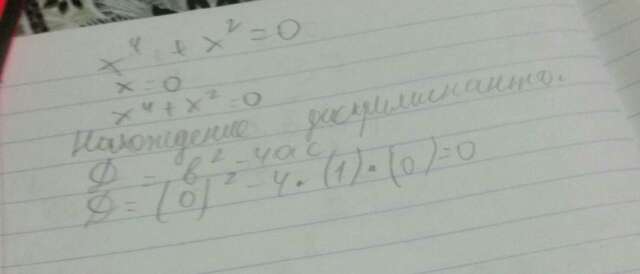 x⁴ + x² = 0
x = 0
x⁴ + x² = 0
Нахождение дискриминанта.
D = b² - 4ac
D = (0)² - 4 · (1) · (0) = 0